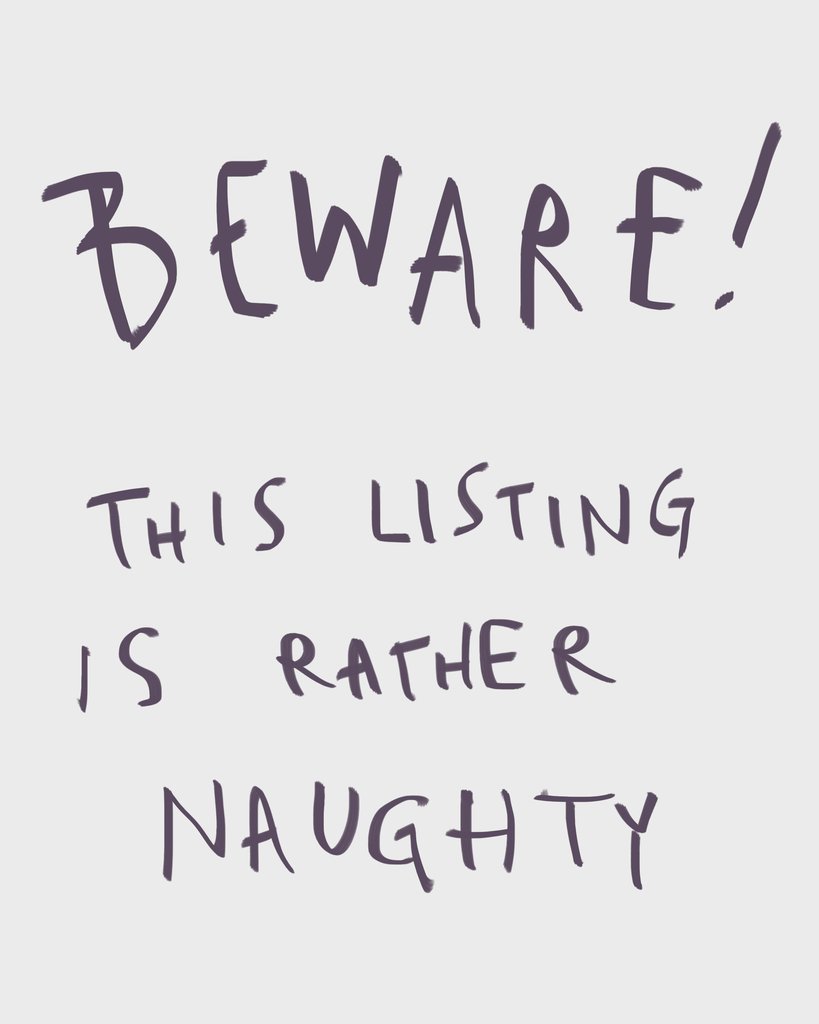 BEWARE!
THIS LISTING
IS RATHER
NAUGHTY